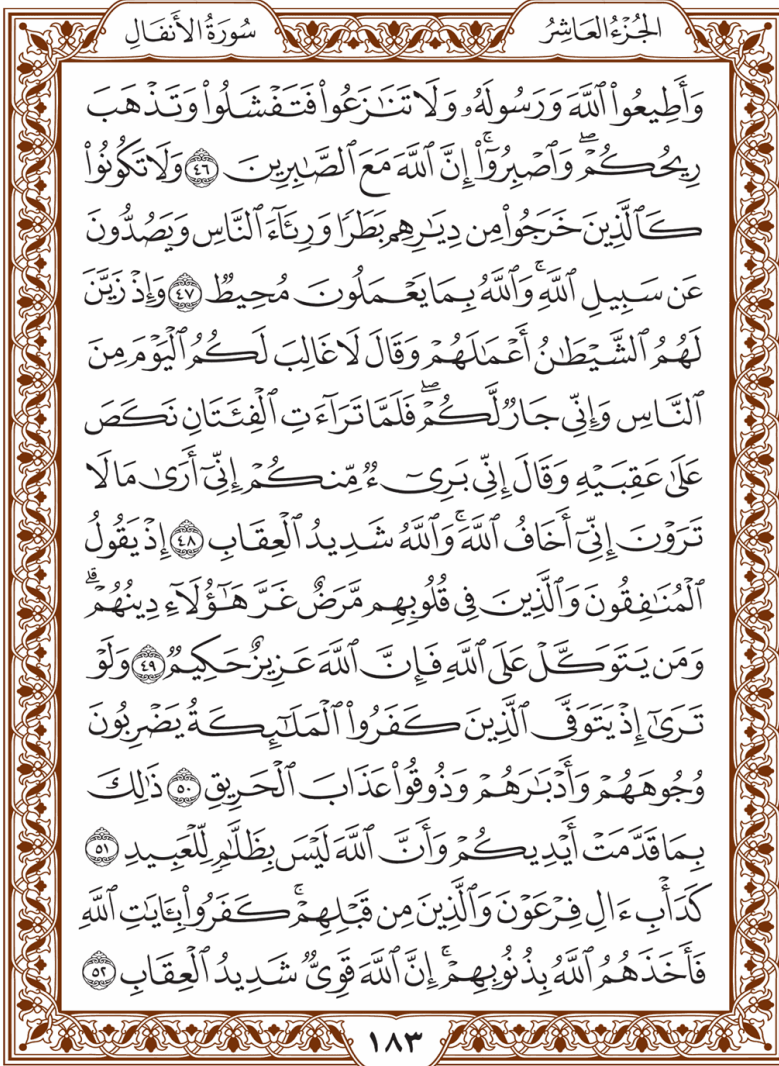 الجُزْءُ العَاشِرُ
سُورَةُ الأَنفَالِ
وَأَطِيعُواْ ٱللَّهَ وَرَسُولَهُۥ وَلَا تَنَٰزَعُواْ فَتَفۡشَلُواْ وَتَذۡهَبَ
رِيحُكُمۡۖ وَٱصۡبِرُوٓاْۚ إِنَّ ٱللَّهَ مَعَ ٱلصَّٰبِرِينَ ٤٦ وَلَا تَكُونُواْ
كَٱلَّذِينَ خَرَجُواْ مِن دِيَٰرِهِم بَطَرٗا وَرِئَآءَ ٱلنَّاسِ وَيَصُدُّونَ
عَن سَبِيلِ ٱللَّهِۚ وَٱللَّهُ بِمَا يَعۡمَلُونَ مُحِيطٞ ٤٧ وَإِذۡ زَيَّنَ
لَهُمُ ٱلشَّيۡطَٰنُ أَعۡمَٰلَهُمۡ وَقَالَ لَا غَالِبَ لَكُمُ ٱلۡيَوۡمَ مِنَ
ٱلنَّاسِ وَإِنِّي جَارٞ لَّكُمۡۖ فَلَمَّا تَرَآءَتِ ٱلۡفِئَتَانِ نَكَصَ
عَلَىٰ عَقِبَيۡهِ وَقَالَ إِنِّي بَرِيٓءٞ مِّنكُمۡ إِنِّيٓ أَرَىٰ مَا لَا
تَرَوۡنَ إِنِّيٓ أَخَافُ ٱللَّهَۚ وَٱللَّهُ شَدِيدُ ٱلۡعِقَابِ ٤٨ إِذۡ يَقُولُ
ٱلۡمُنَٰفِقُونَ وَٱلَّذِينَ فِي قُلُوبِهِم مَّرَضٌ غَرَّ هَٰٓؤُلَآءِ دِينُهُمۡۗ
وَمَن يَتَوَكَّلۡ عَلَى ٱللَّهِ فَإِنَّ ٱللَّهَ عَزِيزٌ حَكِيمٞ ٤٩ وَلَوۡ
تَرَىٰٓ إِذۡ يَتَوَفَّى ٱلَّذِينَ كَفَرُواْ ٱلۡمَلَٰٓئِكَةُ يَضۡرِبُونَ
وُجُوهَهُمۡ وَأَدۡبَٰرَهُمۡ وَذُوقُواْ عَذَابَ ٱلۡحَرِيقِ ٥٠ ذَٰلِكَ
بِمَا قَدَّمَتۡ أَيۡدِيكُمۡ وَأَنَّ ٱللَّهَ لَيۡسَ بِظَلَّٰمٖ لِّلۡعَبِيدِ ٥١
كَدَأۡبِ ءَالِ فِرۡعَوۡنَ وَٱلَّذِينَ مِن قَبۡلِهِمۡۚ كَفَرُواْ بِـَٔايَٰتِ ٱللَّهِ
فَأَخَذَهُمُ ٱللَّهُ بِذُنُوبِهِمۡۚ إِنَّ ٱللَّهَ قَوِيّٞ شَدِيدُ ٱلۡعِقَابِ ٥٢
١٨٣